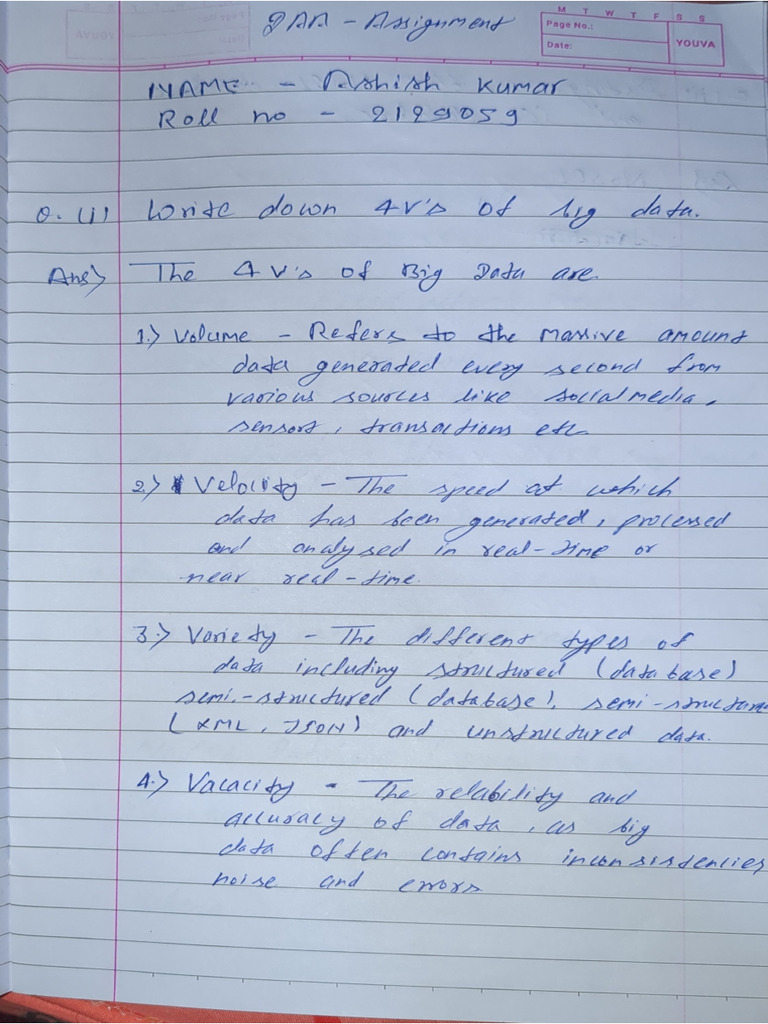 M T W T F S S
DAA - Assignment
Page No.:
Date:
YOUVA
NAME - Ashish Kumar
Roll no - 2129059
Q. (1) Write down 4V's of big data.
Ans) The 4 V's of Big Data are
1.) Volume - Refers to the Massive amount
data generated every second from
various sources like social media,
sensors, transactions etc
2) Velocity - The speed at which
data has been generated, processed
and analysed in real-time or
near real-time.
3.) Variety - The different types of
data including structured (database)
semi-structured (database), semi-structure
(XML, JSON) and unstructured data.
4.) Vacacity - The relability and
accuracy of data, as big
data often contains inconsistencies
noise and errors